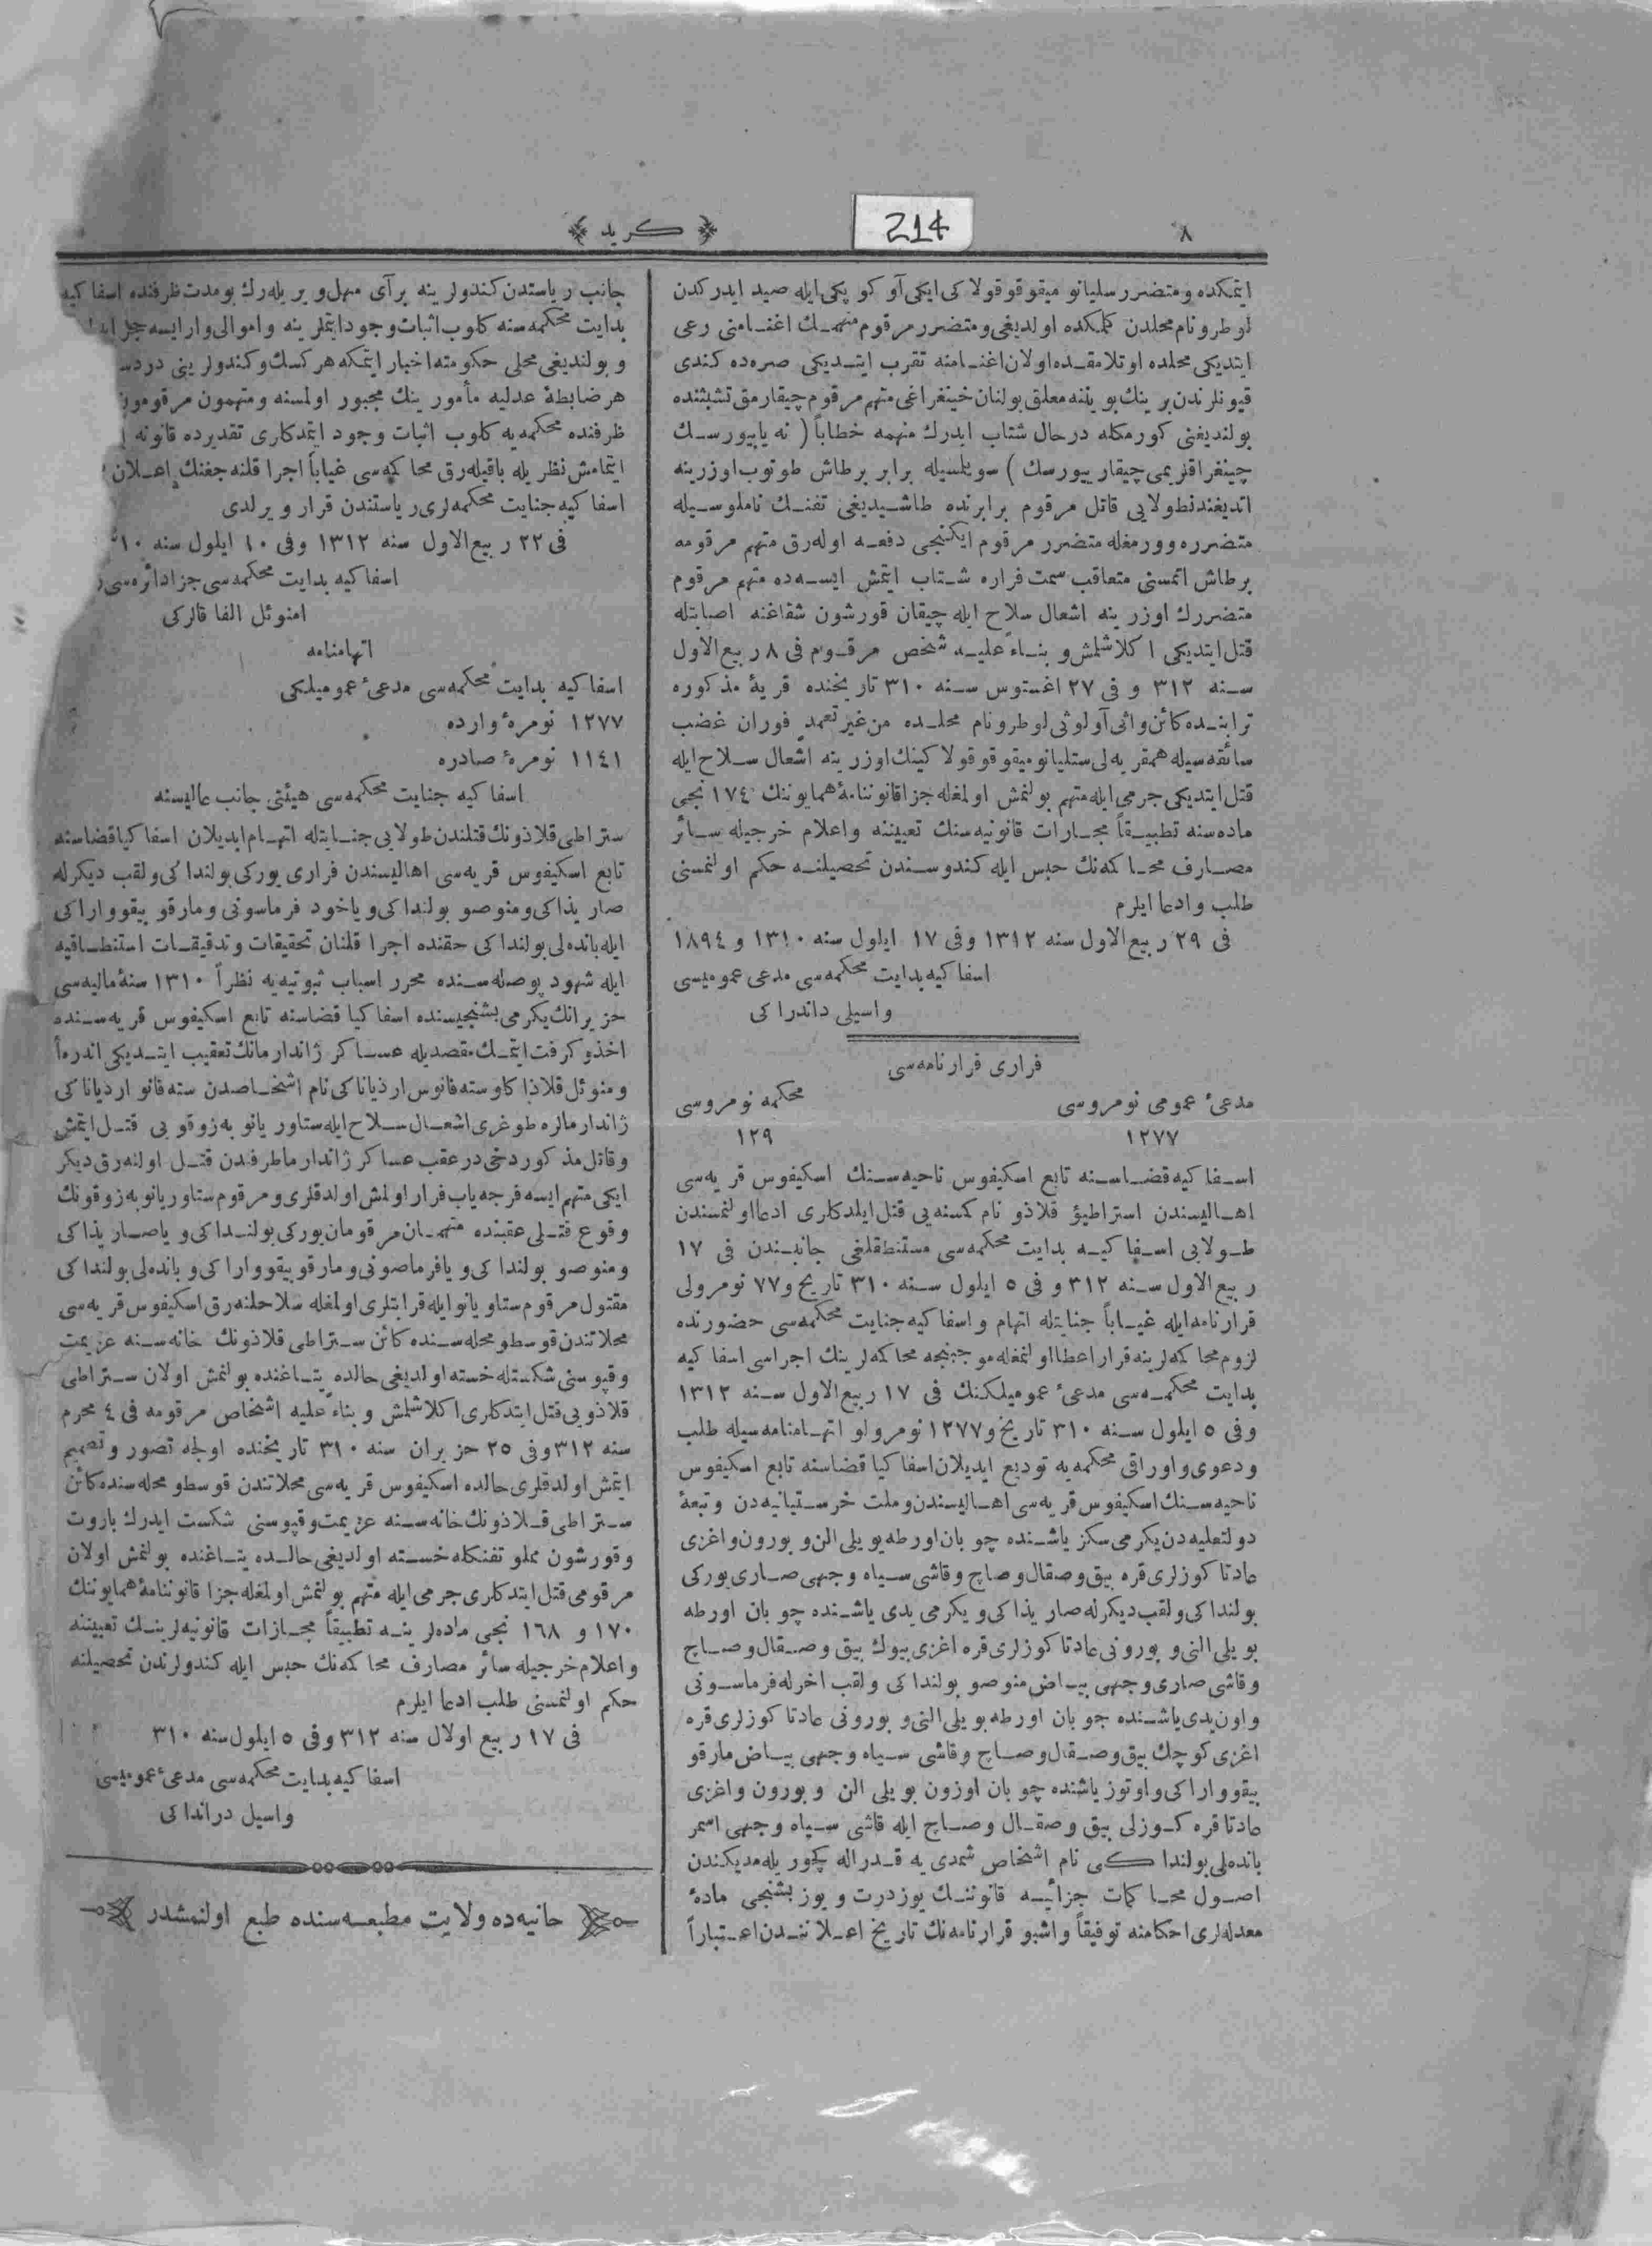 ٨
214
كريد
ايتمكده و متضرر سليانو ميقوقوقولاكى ايكى آو كوپكى ايله صيد ايدركدن
لوطرو نام محلدن كلمكده اولديغى و متضرر مرقوم متهمك اغنامنى رعى
ايتديكى محلده اوتلامقده اولان اغنامنه تقرب ايتديكى صره ده كندى
قيونلرندن برينك بويننه معلق بولنان خينغراغى متهم مرقوم چيقارمق تشبثنده
بولنديغنى كورمكله درحال شتاب ايدرك متهمه خطاباً ( نه ياپيورسك
چينغراقلريمى چيقارييورسك ) سويلمسيله برابر برطاش طوتوب اوزرينه
اتديغندنطولايى قاتل مرقوم برابرنده طاشيديغى تفنك ناملوسيله
متضرره وورمغله متضرر مرقوم ايكنجى دفعه اوله رق متهم مرقومه
برطاش اتمسنى متعاقب سمت فراره شتاب ايتمش ايسه ده متهم مرقوم
متضررك اوزرينه اشعال سلاح ايله چيقان قورشون شقاغنه اصابتله
قتل ايتديكى اكلاشلمش و بناءً عليه شخص مرقوم فى ٨ ربيع الاول
سنه ٣١٢ و فى ٢٧ اغستوس سنه ٣١٠ تاريخنده قريۀ مذكوره
ترابنده كائن واثى آولوثى لوطرو نام محلده من غير تعمد فوران غضب
سائقه سيله همقريه لى ستليانو ميقوقوقولاكينك اوزرينه اشعال سلاح ايله
قتل ايتديكى جرمى ايله متهم بولنمش اولمغله جزا قانوننامۀ همايوننك ١٧٤ نجى
ماده سنه تطبيقاً مجازات قانونيه سنك تعييننه و اعلام خرجيله سائر
مصارف محاكمه نك حبس ايله كندوسندن تحصيلنه حكم اولنمسنى
طلب و ادعا ايلرم
فى ٢٩ ربيع الاول سنه ١٣١٢ و فى ١٧ ايلول سنه ١٣١٠ و ١٨٩٤
اسفاكيه بدايت محكمه سى مدعى عموميسى
واسيلى داندراكى
فرارى قرارنامه سى
مدعئ عمومى نومروسى محكمه نومروسى
١٢٧٧ ١٢٩
اسفاكيه قضاسنه تابع اسكيفوس ناحيه سنك اسكيفوس قريه سى
اهاليسندن استراطيؤ قلاذو نام كسنه يى قتل ايلدكارى ادعا اولنمسندن
طولايى اسفاكيه بدايت محكمه سى مستنطقلغى جانبندن فى ١٧
ربيع الاول سنه ٣١٢ و فى ٥ ايلول سنه ٣١٠ تاريخ و ٧٧ نومرولى
قرارنامه ايله غياباً جنايتله اتهام و اسفاكيه جنايت محكمه سى حضورنده
لزوم محاكمه لرينه قرار اعطا اولنمغله موجبنجه محاكمه لرينك اجراسى اسفاكيه
بدايت محكمه سى مدعئ عموميلكنك فى ١٧ ربيع الاول سنه ١٣١٢
و فى ٥ ايلول سنه ٣١٠ تاريخ و ١٢٧٧ نومرولو اتهامنامه سيله طلب
و دعوى و اوراقى محكمه يه توديع ايديلان اسفاكيا قضاسنه تابع اسكيفوس
ناحيه سنك اسكيفوس قريه سى اهاليسندن و ملت خرستيانيه دن و تبعۀ
دولتعليه دن يكرمى سكز ياشنده چوبان اورطه بويلى الن و بورون و اغزى
عادتا كوزلرى قره بيق و صقال و صاچ و قاشى سياه و جهى صارى يوركى
بولنداكى و لقب ديكرله صاريذاكى و يكرمى يدى ياشنده چوبان اورطه
بويلى النى و بورونى عادتا كوزلرى قره اغزى بيوك بيق و صقال و صاچ
و قاشى صارى و جهى بياض منوصو بولنداكى و لقب اخرله فرماسونى
و اون يدى ياشنده جوبان اورطه بويلى النى و بورونى عادتا كوزلرى قره
اغزى كوچك بيق و صقال و صاچ و قاشى سياه و جهى بياض مارقو
بيقوواراكى و اوتوز ياشنده چوبان اوزون بويلى الن و بورون و اغزى
عادتا قره كوزلى بيق و صقال و صاچ ايله قاشى سياه و جهى اسمر
بانده لى بولنداكى نام اشخاص شمدى يه قدر اله كچوريله مديكندن
اصول محاكمات جزائيه قانوننك يوز درت و يوز بشنجى مادۀ
معدله لرى احكامنه توفيقاً و اشبو قرارنامه نك تاريخ اعلانندن اعتباراً
جانب رياستدن كندولرينه بر آى مهل ويريله رك بو مدت ظرفنده اسفاكيه
بدايت محكمه سنه كلوب اثبات وجود ايتملرينه و اموالى وار ايسه حجز
و بولنديغى محلى حكومته اخبار ايتمكه هركسك و كندولرينى
هر ضابطۀ عدليه مأمورينك مجبور اولمسنه و متهمون مرقومون
ظرفنده محكمه يه كلوب اثبات وجود ايتمدكارى تقديرده قانونه
ايتمامش نظريله باقيله رق محاكمه سى غياباً اجرا قلنه جغنك اعلان
اسفاكيه جنايت محكمه لرى رياستندن قرار ويرلدى
فى ٢٢ ربيع الاول سنه ١٣١٢ و فى ١٠ ايلول سنه
اسفاكيه بدايت محكمه سى جزا دائره سى
امنوئل الفاقالركى
اتهامنامه
اسفاكيه بدايت محكمه سى مدعئ عموميلكى
١٢٧٧ نومرۀ وارده
١١٤١ نومرۀ صادره
اسفاكيه جنايت محكمه سى هيئتى جانب عاليسنه
ستراطى قلاذونك قتلندن طولايى جنايتله اتهام ايديلان اسفاكيا قضاسنه
تابع اسكيفوس قريه سى اهاليسندن فرارى يوركى بولنداكى و لقب ديكرله
صاريذاكى و منوصو بولنداكى و ياخود فرماسونى و مارقو بيقوواراكى
ايله بانده لى بولنداكى حقنده اجرا قلنان تحقيقات و تدقيقات استنطاقيه
ايله شهود پوصله سنده محرر اسباب ثبوتيه يه نظراً ١٣١٠ سنۀ ماليه سى
حزيرانك يكرمى بشنجيسنده اسفاكيا قضاسنه تابع اسكيفوس قريه سنده
اخذ و كرفت ايتمك مقصديله عساكر ژاندارمانك تعقيب ايتديكى اندره آ
و منوئل قلاذاكا و سته فانوس ارذياناكى نام اشخاصدن سته فانو ارذياناكى
ژاندارمالره طوغرى اشعال سلاح ايله ستاوريانو په زوقويى قتل ايتمش
و قاتل مذكور دخى درعقب عساكر ژاندارما طرفندن قتل اولنه رق ديكر
ايكى متهم ايسه فرجه ياب فرار اولمش اولدقلرى و مرقوم ستاوريانو په زوقونك
وقوع قتلى عقبنده متهمان مرقومان يوركى بولنداكى و يا صاريذاكى
و منوصو بولنداكى و يا فرماصونى و مارقو بيقوواراكى و بانده لى بولنداكى
مقتول مرقوم ستاويانو ايله قرابتلرى اولمغله سلاحلنه رق اسكيفوس قريه سى
محلاتندن قوسطو محله سنده كائن ستراطى قلاذونك خانه سنه عزيمت
و قپوسنى شكستله خسته اولديغى حالده يتاغنده بولنمش اولان ستراطى
قلاذويى قتل ايتدكارى اكلاشلمش و بناءً عليه اشخاص مرقومه فى ٤ محرم
سنه ٣١٢ و فى ٢٥ حزيران سنه ٣١٠ تاريخنده اولجه تصور و تصميم
ايتمش اولدقلرى حالده اسكيفوس قريه سى محلاتندن قوسطو محله سنده كائن
ستراطى قلاذونك خانه سنه عزيمت و قپوسنى شكست ايدرك باروت
و قورشون مملو تفنكله خسته اولديغى حالده يتاغنده بولنمش اولان
مرقومى قتل ايتدكارى جرمى ايله متهم بولنمش اولمغله جزا قانوننامۀ همايوننك
١٧٠ و ١٦٨ نجى ماده لرينه تطبيقاً مجازات قانونيه لرينك تعييننه
و اعلام خرجيله سائر مصارف محاكمه نك حبس ايله كندولرندن تحصيلنه
حكم اولنمسنى طلب ادعا ايلرم
فى ١٧ ربيع اولال سنه ٣١٢ و فى ٥ ايلول سنه ٣١٠
اسفاكيه بدايت محكمه سى مدعئ عموميسى
واسيل درانداكى
حانيه ده ولايت مطبعه سنده طبع اولنمشدر